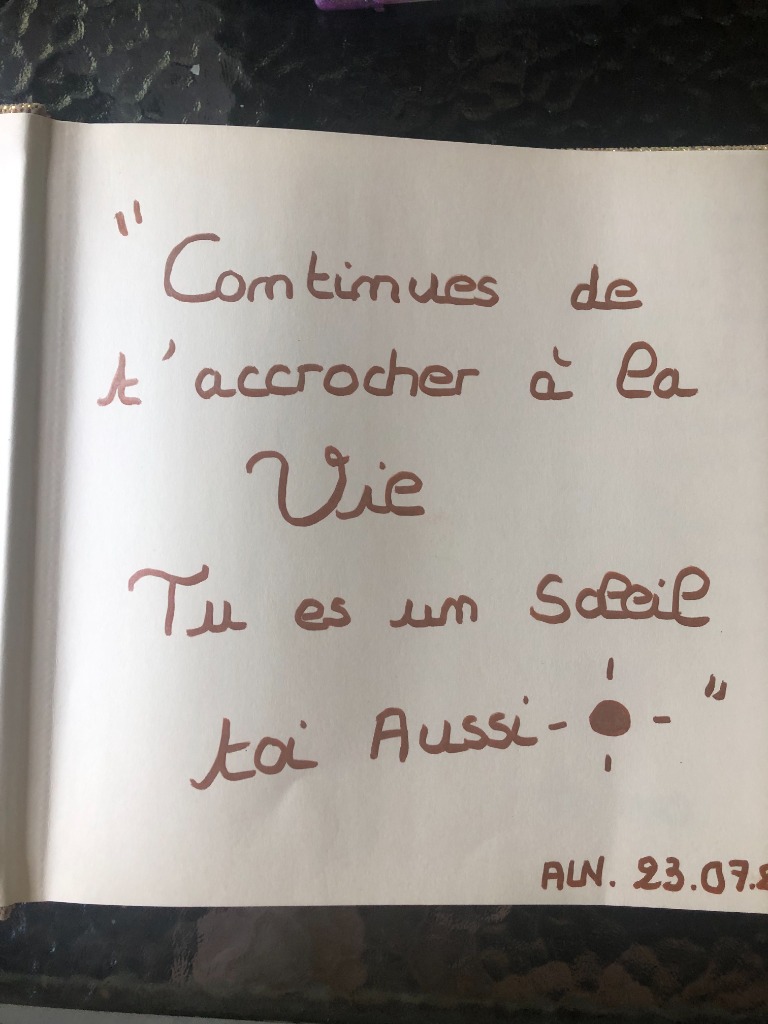 " Continues de
t'accrocher à la
Vie
Tu es un Soleil
toi Aussi "
ALN. 23.07.